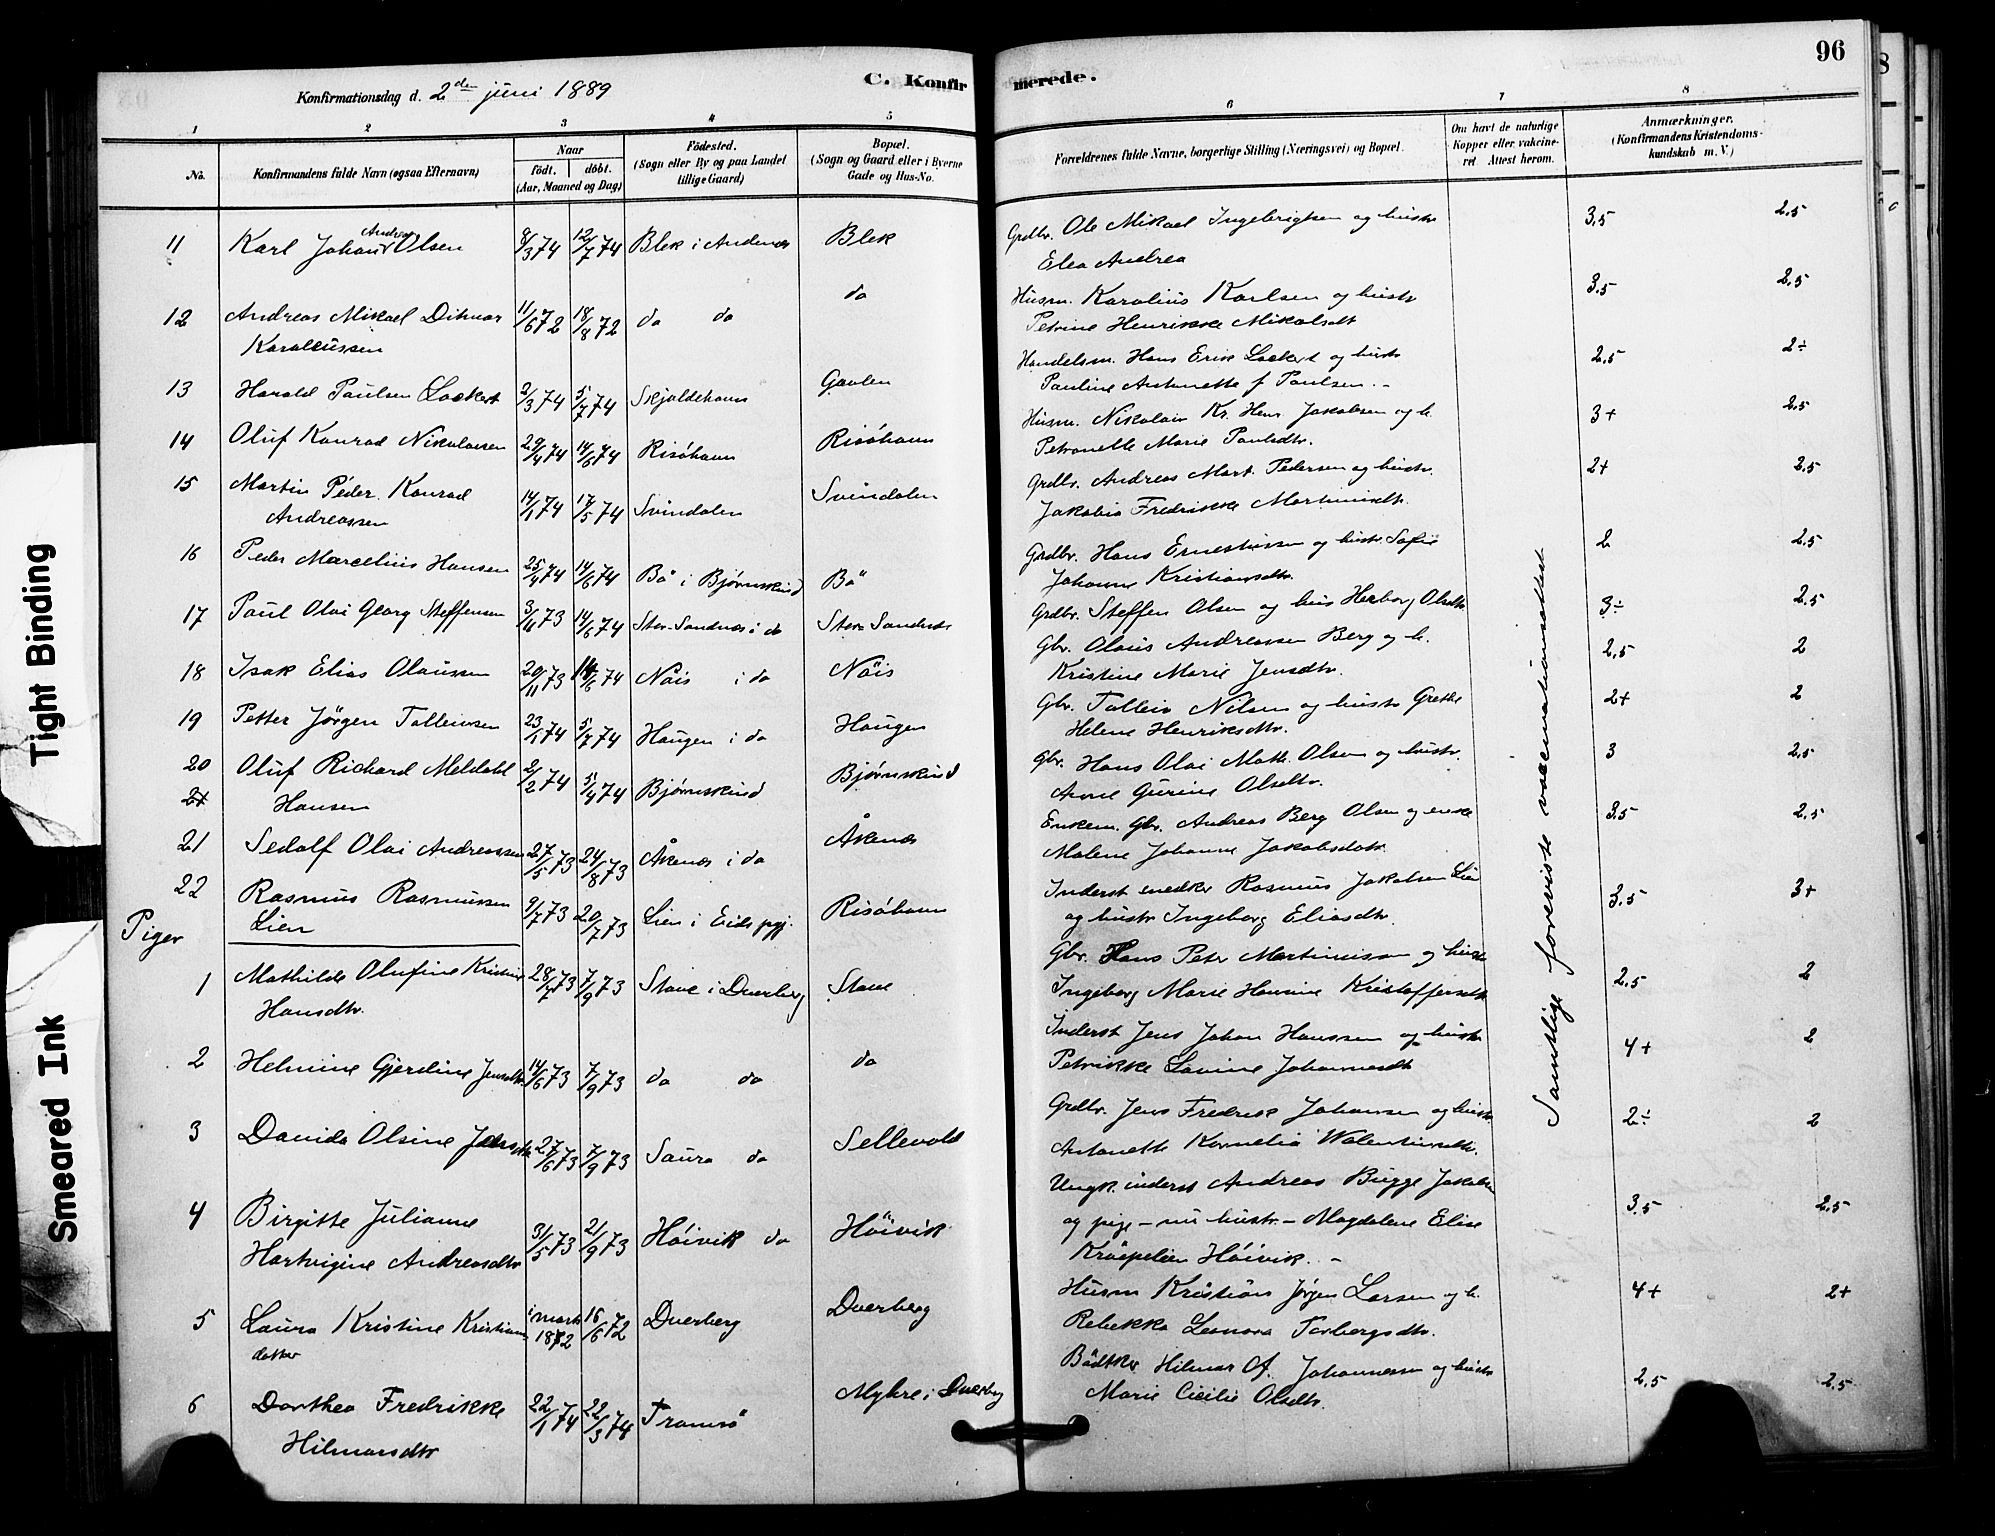 96
C. Konfirmerede.
Konfirmationsdag d. 2den juni 1889
1 2 3 4 5 6 7 8
No.
Konfirmandens fulde Navn (ogsaa Efternavn)
Naar
födt. döbt.
(Aar, Maaned og Dag)
Födested.
(Sogn eller By og paa Landet
tillige Gaard)
Bopæl.
(Sogn og Gaard eller i Byerne
Gade og Hus-No.
Forældrenes fulde Navne, borgerlige Stilling (Næringsvei) og Bopæl.
Om havt de naturlige
Kopper eller vakcine-
ret Attest herom.
Anmærkninger.
(Konfirmandens Kristendoms-
kundskab m. V.)
11 Karl Johan Andreas Olsen 8/3 74 12/7 74 Blek i Andenes Blek Grdbr. Ole Mikael Ingebrigtsen og hustr 3.5 2.5
Elea Andrea
12 Andreas Mikael Ditmar 11/6 72 18/8 72 do do do Husm. Karolius Karlsen og hustr 3.5 2.5
Karoliussen Petrine Henrikke Mikalsdt
13 Harald Paulsen Lockert 2/3 74 5/7 74 Skjoldehavn Gavlen Handelsm. Hans Erik Lockert og hustr 2.5 2÷
Pauline Antonette f Paulsen. -
14 Oluf Konrad Nikolaisen 29/4 74 14/6 74 Risöhavn Risöhavn Husm. Nikolai Kr. Hen. Jakobsen og h. 3+ 2.5
Petronelle Marie Paulsdtr.
15 Martin Peder Konrad 14/1 74 17/5 74 Svindalen Svindalen Grdbr. Andreas Mart. Pedersen og hustr. 2+ 2.5
Andreassen Jakobia Fredrikke Martinusdtr.
16 Peder Marcelius Hansen 25/4 74 14/6 74 Bö i Bjørnskind Bö Grdbr. Hans Ernestussen og hustr. Sofie 2 2.5
Johanne Kristiansdtr.
17 Paul Olai Georg Steffensen 3/11 73 14/6 74 Stor-Sandnes i do Store Sandnes Grdbr. Steffen Olsen og hus Herborg Olsdtr 3÷ 2.5
18 Isak Elias Olaussen 20/11 73 14/6 74 Nöis i do Nöis Gbr. Olaus Andreassen Berg og h. 2.5 2
Kristine Marie Jensdtr.
19 Petter Jörgen Tolleivsen 23/1 74 5/7 74 Haugen i do Haugen Gbr. Tolleiv Nilsen og hustr Grethe 2+ 2
Helene Henriksdtr.
20 Oluf Richard Meldahl 2/2 74 5/4 74 Bjørnskind Bjørnskind Gbr. Hans Olai Math. Olsen og hustr. 3 2.5
21 Hansen Anne Gurine Olsdtr.
21 Sedolf Olai Andreassen 27/5 73 24/8 73 Åkenes i do Åkenes Enkem. Gbr. Andreas Berg Olsen og enke 3.5 2.5
Malene Johanne Jakobsdatr.
22 Rasmus Rasmussen 9/7 73 20/7 73 Lien i Eids pgj. Risöhavn Inderst snedker Rasmus Jakobsen Lien 3.5 3+
Lien og hustr Ingeborg Eliasdtr.
Piger
1 Mathilde Olufine Kristine 28/7 73 7/9 73 Stave i Dverberg Stave Gbr. Hans Peter Martinussen og hustr 2.5 2
Hansdtr. Ingeborg Marie Hansine Kristoffersdtr
2 Helmine Gjerdine Jensdtr. 14/6 73 7/9 73 do do do Inderst Jens Johan Hanssen og hustr 4+ 2
Petrikke Lovine Johannesdt
3 Davida Olsine Jensdtr 27/6 73 7/9 73 Saura do Sellevold Grdbr. Jens Fredrik Johansen og hustr. 2÷ 2
Antonette Kornelia Walentinsdtr.
4 Birgitte Julianne 31/5 73 21/9 73 Höivik do Höivik Ungk. inderst Andreas Bugge Jakobsen 3.5 2.5
Hartvigine Andreasdtr og pige - nu hustr. - Magdalene Elise
Kröepelien Höivik. -
5 Laura Kristine Kristians i marts 1872 16/6 72 Dverberg Dverberg Husm Kristian Jörgen Larsen og h. 4+ 2+
datter Rebekka Leonora Torbergsdtr.
6 Dorthea Fredrikke 22/1 74 22/3 74 Tromsö Myhre i Dverberg Bödtker Hilmar Of. Johannessen og hustr 2.5 2.5
Hilmarsdtr Marie Cicilie Olsdtr.
Samtlige foreviste vaccinationsattest
Tight Binding
Smeared Ink